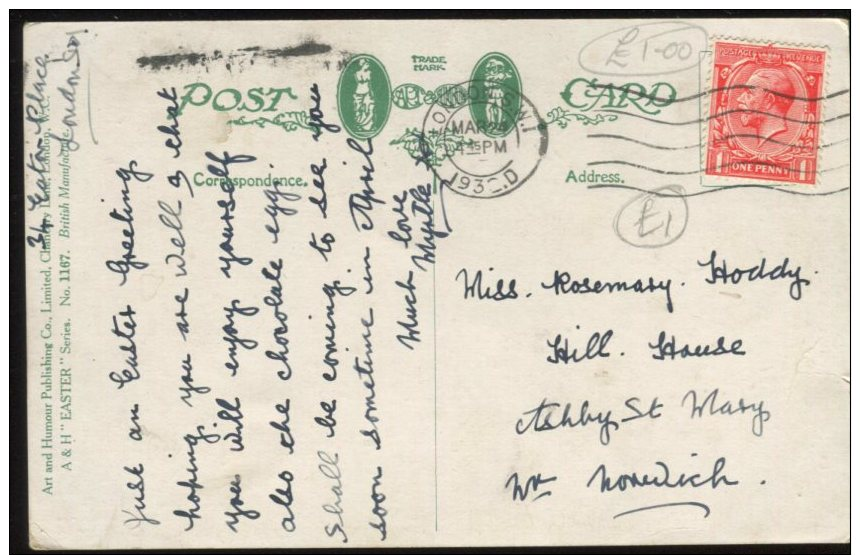 34 Eaton Place
London SW
Art and Humour Publishing Co., Limited, Chancery Lane, London, W.C.
A & H "EASTER" Series. No. 1167. British Manufacture.
POST CARD
TRADE
MARK
Correspondence.
Address.
Just an Easter Greeting
hoping you are well & that
you will enjoy yourself
also the chocolate egg.
Shall be coming to see you
soon sometime in April
Much love
Myrtle
LONDON. S.W.1
MAR 24
4 15 PM
193
POSTAGE REVENUE
ONE PENNY
£1-00
£1
Miss. Rosemary. Hoddy.
Hill. House
Ashby St Mary
Nr Norwich.